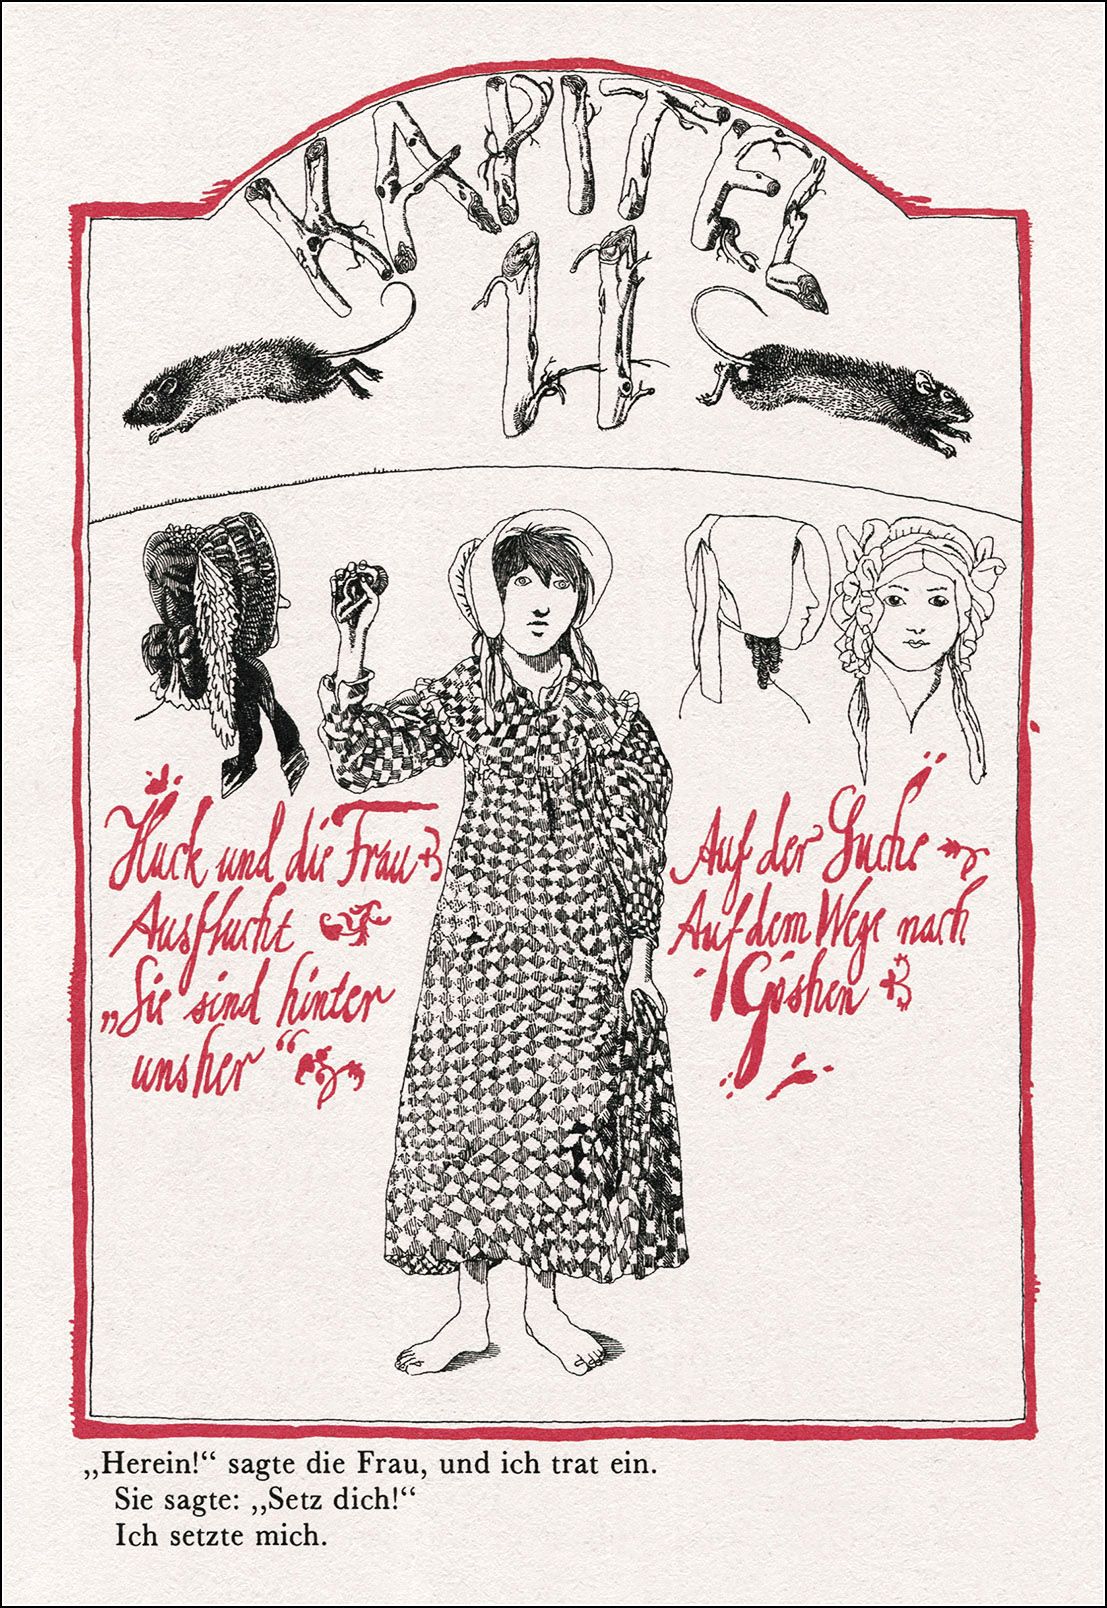 KAPITEL
11
Huck und die Frau
Ausflucht
„Sie sind hinter
uns her“
Auf der Suche
Auf dem Wege nach
Goshen
„Herein!“ sagte die Frau, und ich trat ein.
Sie sagte: „Setz dich!“
Ich setzte mich.